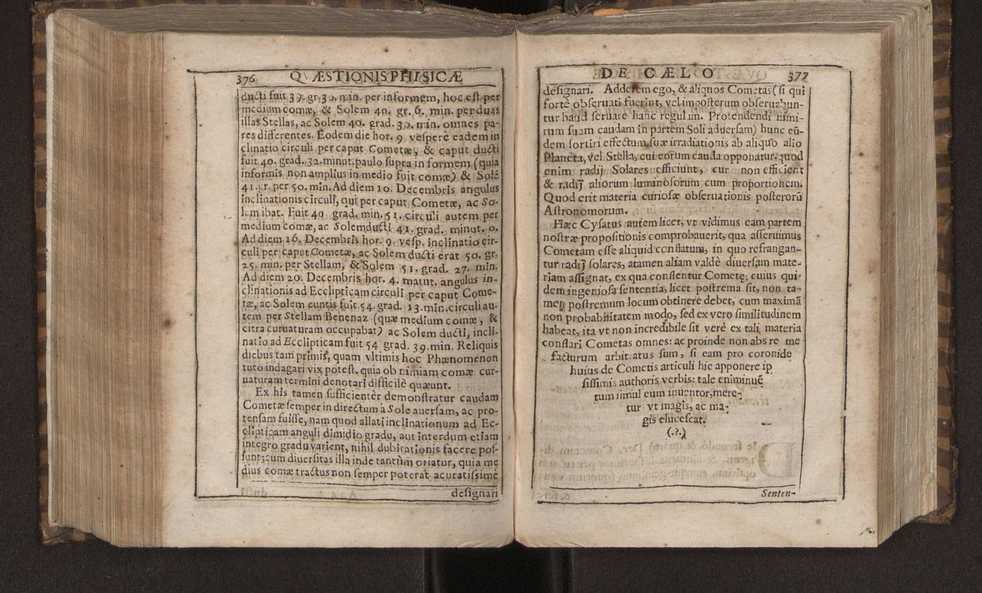 376 QVÆSTIONIS PHISICÆ
ducti fuit 39. gr. 30. min. per informem, hoc est per
medium comæ, & Solem 40. gr. 6. min. per duas
illas Stellas, ac Solem 40. grad. 30. min. omnes pa-
res differentes. Eodem die hor. 9. vespere eadem in
clinatio circuli per caput Cometæ, & caput ducti
fuit 40. grad. 32. minut. paulo supra informem (quia
informis non amplius in medio fuit comæ) & Solē
41. gr. per 50. min. Ad diem 10. Decembris angulus
inclinationis circuli, qui per caput Cometæ, ac So-
lem ibat. Fuit 40 grad. min. 51. circuli autem per
medium comæ, ac Solem ducti 41. grad. minut. 0.
Ad diem 16. Decembris hor. 9. vesp. inclinatio cir-
culi per caput Cometæ, ac Solem ducti erat 50. gr.
25. min. per Stellam, & Solem 51. grad. 27. min.
Ad diem 20. Decembris hor. 4. matut. angulus in-
clinationis ad Ecclipticam circuli per caput Come-
tæ, ac Solem euntis fuit 54. grad. 13. min. circuli au-
tem per Stellam Benenaz (quæ medium comæ, &
citra curuaturam occupabat) ac Solem ducti, incli-
natio ad Ecclipticam fuit 54 grad. 39. min. Reliquis
diebus tam primis, quam vltimis hoc Phænomenon
tuto indagari vix potest, quia ob nimiam comæ cur-
uaturam termini denotari difficilè queunt.
Ex his tamen sufficientèr demonstratur caudam
Cometæ semper in directum à Sole auersam, ac pro-
tensam fuisse, nam quod allati inclinationum ad Ec-
clipticam anguli dimidio gradu, aut interdum etiam
integro gradu varient, nihil dubitationis facere pos-
sunt, cum diuersitas illa inde tantùm oriatur, quia me
dius comæ tractus non semper poterat acuratissimè
designari
DE CÆLO 377
designari. Adderem ego, & aliquos Cometas (si qui
fortè obseruati fuerint, vel imposterum obseruabun-
tur haud seruare hanc regulam. Protendendi nimi-
rum suam caudam in partem Soli aduersam) hunc eū-
dem sortiri effectum suæ irradiationis ab aliquo alio
Planeta, vel Stella, cui eorum cauda opponatur, quod
enim radij Solares efficiunt, cur non efficient
& radij aliorum luminosorum cum proportionem.
Quod erit materia curiosæ obseruationis posterorū
Astronomorum.
Hæc Cysatus autem licet, vt vidimus eam partem
nostræ propositionis comprobauerit, qua asseruimus
Cometam esse aliquid constatum, in quo refrangan-
tur radij solares, atamen aliam valdè diuersam mate-
riam assignat, ex qua conflentur Cometę; cuius qui-
dem ingeniosa sententia, licet postrema sit, non ta-
men postremum locum obtinere debet, cum maximā
non probabilitatem modo, sed ex vero similitudinem
habeat, ita vt non incredibile sit verè ex tali materia
conflari Cometas omnes: ac proinde non abs re me
facturum arbitratus sum, si eam pro coronide
huius de Cometis articuli hic apponere ip
sissimis authoris verbis: tale enim inuē
tum simul cum inuentor, mere-
tur vt magis, ac ma-
gis elucescat.
(.?.)
Senten-